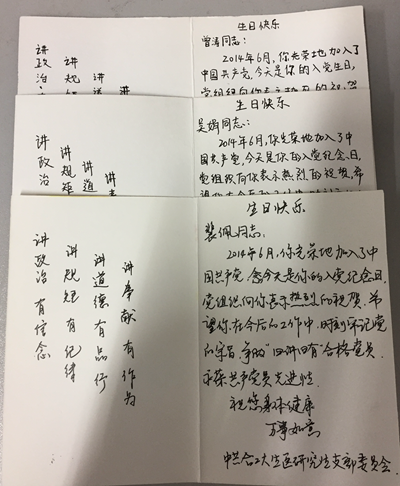 生日快乐
曾涛同志:
2014年6月,你光荣地加入了
中国共产党,今天是你的入党生日,
讲政治
讲规
讲道
讲
生日快乐
吴娟同志:
2014年6月,你光荣地加入了中
国共产党,今天是你的入党纪念日,
党组织向你表示热烈的祝贺,希
讲政治
讲规矩
讲道
讲
生日快乐
裴佩同志:
2014年6月,你光荣地加入了中
国共产党。今天是你的入党纪念日,
党组织向你表示热烈的祝贺。希
望你在今后的工作中,时刻牢记党
的宗旨,争做"四讲四有"合格党员,
永葆共产党员先进性.
祝您身体健康
万事如意
中共合工大生医研究生支部委员会.
讲奉献 有作为
讲道德 有品行
讲规矩 有纪律
讲政治 有信念